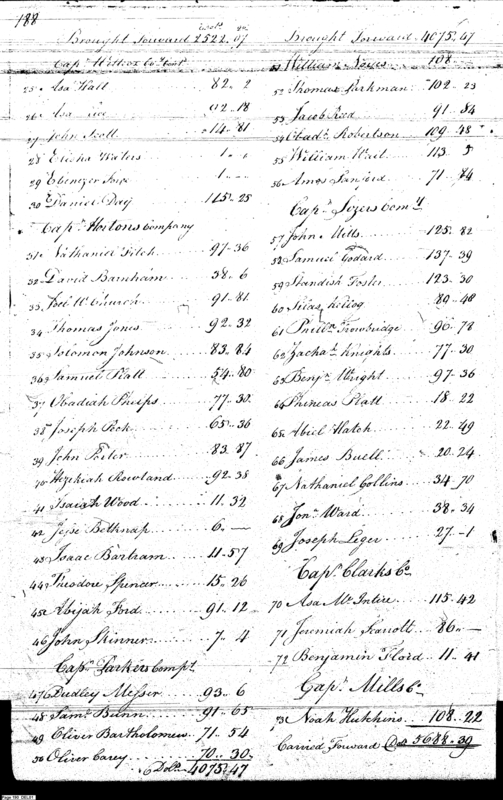 188
Dols. 90s.
Brought Forward 2522..07
Capn. Willcox Co. Cont.
25 Asa Hall 82..2
26 Asa 02..18
27 John Scott 14..81
28 Elisha Waters 1..
29 Ebenezer 1..
30 Daniel Day 115..25
Capn. Hortons Company
31 Nathaniel Fitch 97..36
32 David Barnham 38..6
33 Joel W Church 91..81
34 Thomas Jones 92..32
35 Solomon Johnson 83..84
36 Samuel Platt 54..80
37 Obadiah Phelps 77..30
38 Joseph Peck 65..36
39 John Porter 83..87
40 Hezekiah Rowland 92..38
41 Isaiah Wood 11..32
42 Jesse Belknap 6..—
43 Isaac Bartram 11..57
44 Theodore Spencer 15..26
45 Abijah Ford 91..12
46 John Skinner 7..4
Capn. Parkers Compy.
47 Dudley Messer 93..6
48 Saml. Bunn 91..65
49 Oliver Bartholomew 71..54
50 Oliver Carey 70..30
Dols. 4075..47
Brought Forward 4075..47
51 William Noyes 108
52 Thomas Kirkman 102..23
53 Jacob Reed 91..84
54 Obadh. Robertson 109..48
55 William Wait 113..5
56 Amos Sanford 71..84
Capn. Comy.
57 John Mills 125..82
58 Samuel Godard 137..39
59 Standish Foster 123..30
60 Silas Kellog 89..48
61 Trowbridge 90..78
62 Zachah. Knights 77..30
63 Benjn. Wright 97..36
64 Phineas Platt 18..22
65 Abiel Hatch 22..49
66 James Buell 20..24
67 Nathaniel Collins 34..70
68 Jonn. Ward 38..34
69 Joseph Leger 27..1
Capn. Clarks Co.
70 Asa Mc. Intire 115..42
71 Jeremiah 86..—
72 Benjamin Flord 11..41
Capn. Mills Co.
73 Noah Hutchins 108..22
Carried Forward Dols 5688..39